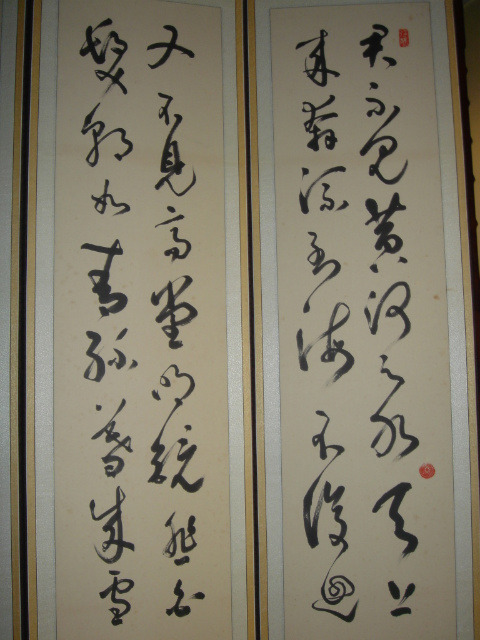 君不見黃河之水天上
來奔流到海不復迴
又不見高堂明鏡悲白
髮朝如青絲暮成雪